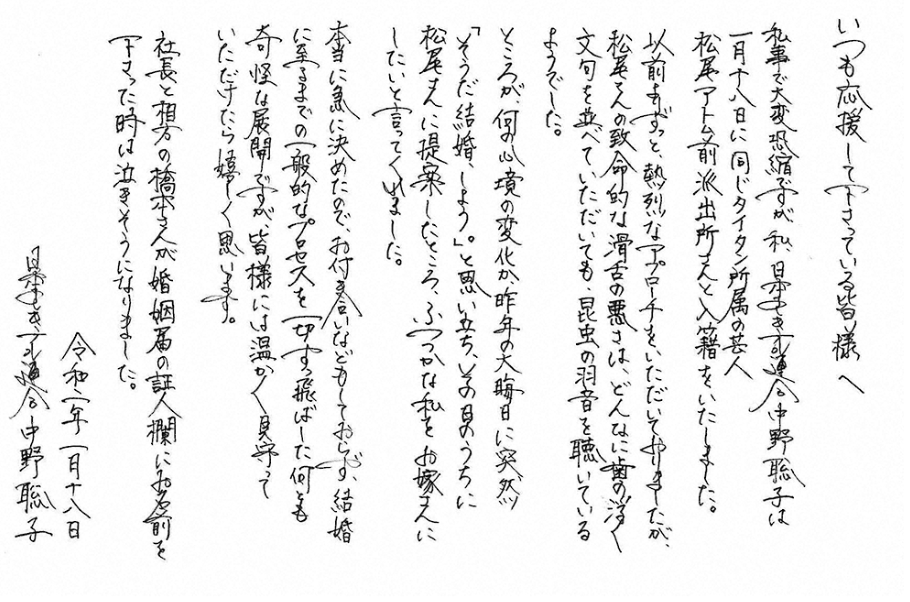 いつも応援して下さっている皆様へ
私事で大変恐縮ですが、私、日本エレキテル連合中野聡子は
一月十八日に同じタイタン所属の芸人
松尾アトム前派出所さんと入籍をいたしました。
以前よりずっと、熱烈なアプローチをいただいておりましたが、
松尾さんの致命的な滑舌の悪さは、どんなに歯の浮く
文句を並べていただいても、昆虫の羽音を聴いている
ようでした。
ところが、何の心境の変化か、昨年の大晦日に突然
「そうだ結婚、しよう。」と思い立ち、その日のうちに
松尾さんに提案したところ、ふつつかな私をお嫁さんに
したいと言ってくれました。
本当に急に決めたので、お付き合いなどもしておらず、結婚
に至るまでの一般的なプロセスを一切すっ飛ばした何とも
奇怪な展開ですが、皆様には温かく見守って
いただけたら嬉しく思います。
社長と相方の橋本さんが婚姻届の証人欄にお名前を
下さった時は泣きそうになりました。
令和二年一月十八日
日本エレキテル連合中野聡子